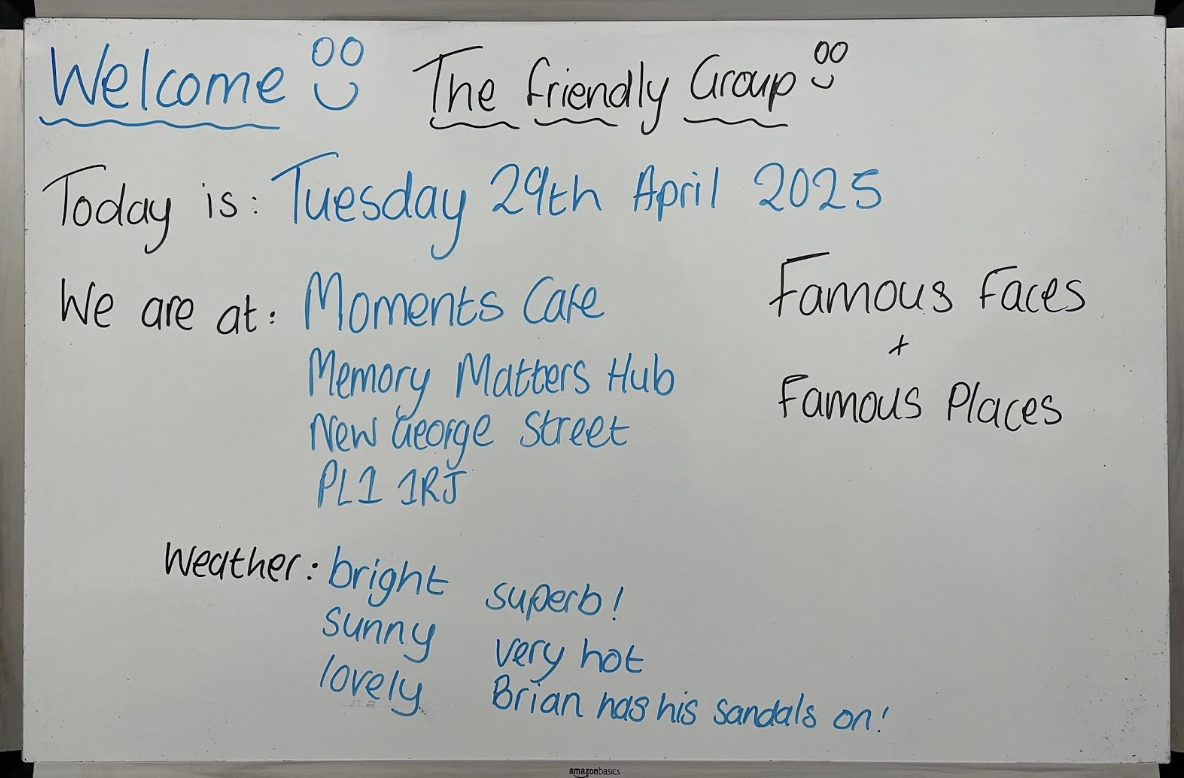 Welcome The Friendly Group
Today is: Tuesday 29th April 2025
We are at: Moments Cafe
Memory Matters Hub
New George Street
PL1 1RJ
Famous Faces
+
Famous Places
Weather: bright superb!
sunny very hot
lovely Brian has his sandals on!
amazonbasics